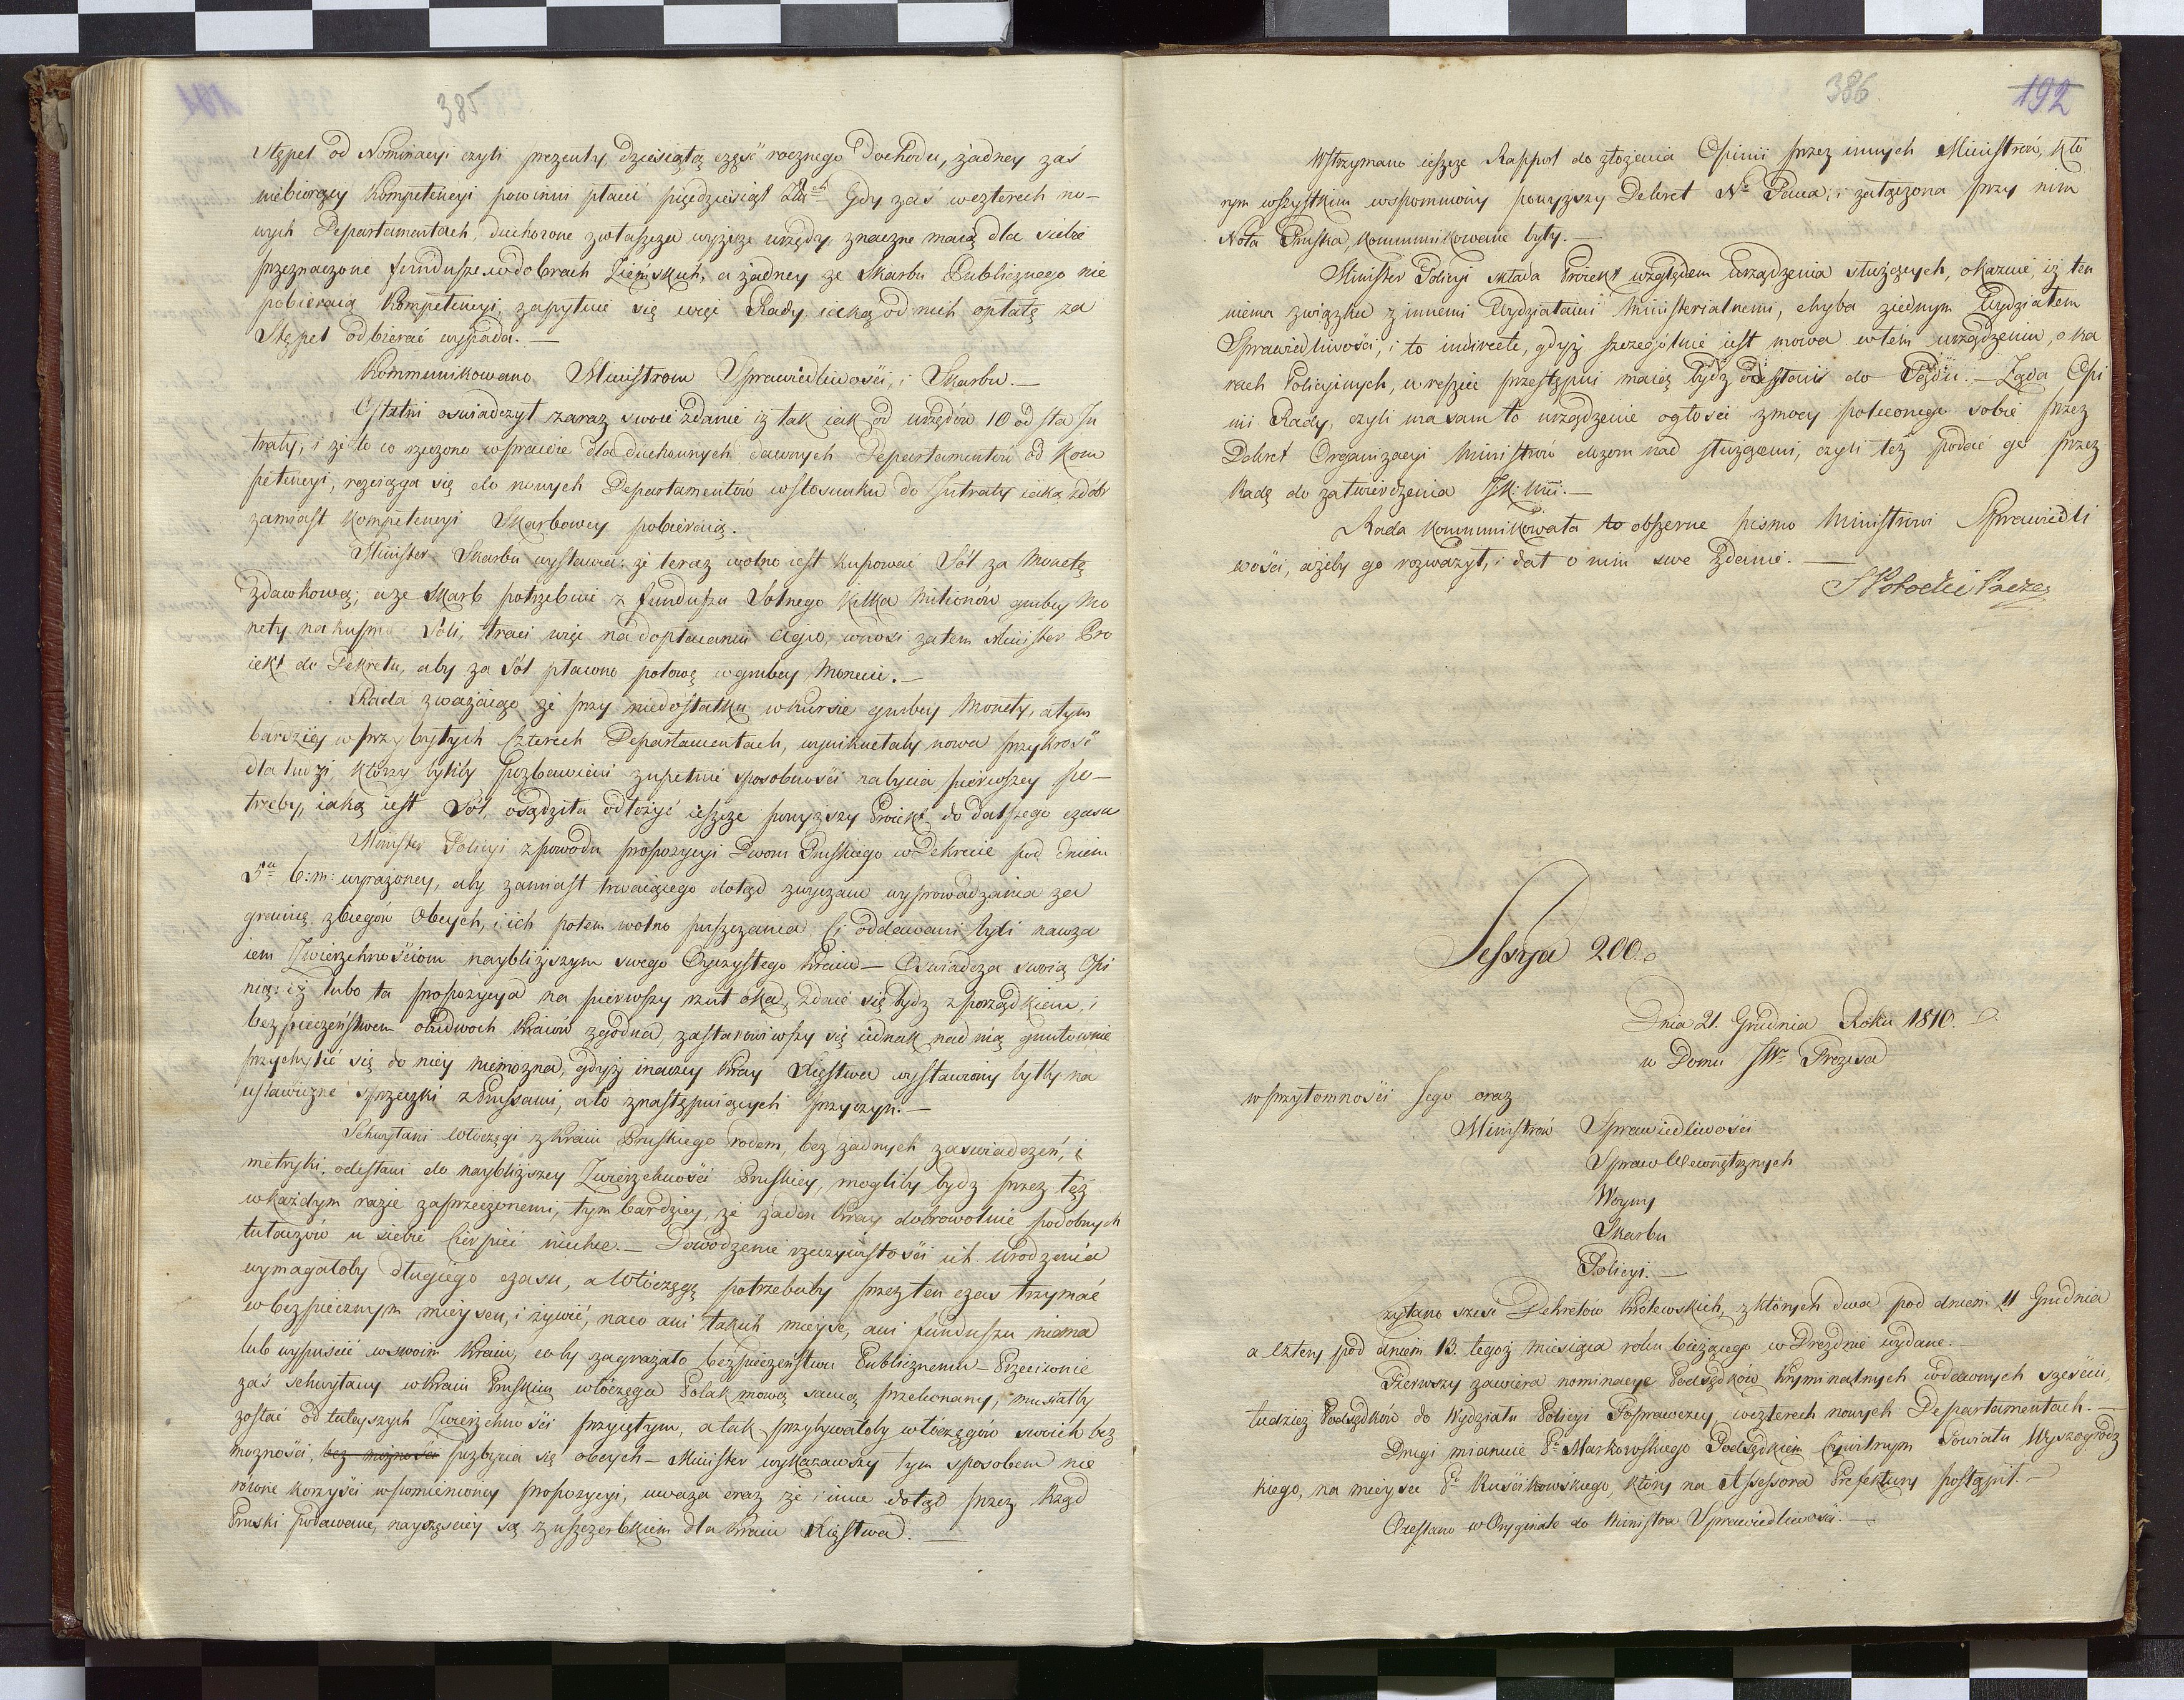 385
Stępel od Nominacyi czyli prezenty dziesiątą część rocznego Dochodu, żadney zaś
niebiorący Kompetencyi powinni płacić pięćdziesiąt Gdy zaś wczterech no-
wych Departamentach, duchowne zwłaszcza wyższe urzędy znaczne maią dla siebie
przeznaczone fundusze wdobrach Ziemskich, a żadney ze Skarbu Publicznego nie
pobieraią Kompetencyi, zapytuie się więc Rady iaką od nich opłatę za
Stępel odbierać wypada. —
Kommunikowano Ministrom Sprawiedliwości, i Skarbu. —
Ostatni oświadczył zaraz swoie zdanie iż tak iak od urzędów 10 od sta In
traty, i że to co rzeczono wprawie dla duchownych dawnych Departamentów od Kom
petencyi, rozciąga się do nowych Departamentów wstosunku do Intraty iaką zdóbr
zamiast Kompetencyi Skarbowey pobieraią.
Minister Skarbu wystawia: że teraz wolno iest kupować Sól za Monetę
zdawkową; a że Skarb potrzebuie z funduszu Solnego kilka Milionów grubey Mo
nety na kupno Soli, traci więc na dopłacaniu Agio, wnosi zatem Minister Pro
iekt do Dekretu, aby za Sól płacono połowę wgrubey Monecie. —
Rada zważaiąc że przy niedostatku wkursie grubey Monety, atym
bardziey w przybytych Czterech Departamentach, wyniknęłaby nowa przykrość
dla ludzi, którzy byliby pozbawieni zupełnie sposobności nabycia pierwszey po-
trzeby, iaką iest Sól, osądziła odłożyć ieszcze powyższy Proiekt do dalszego czasu
Minister Policyi zpowodu propozycyi Dworu Pruskiego w Dekrecie pod dniem
5ta b: m: wyrażoney, aby zamiast trwaiącego dotąd zwyczaiu wyprowadzania za
granicę zbiegów Obcych, i ich potem wolno puszczania Ci oddawani byli nawza
iem Zwierzchnościom naybliższym swego Oyczystego Kraiu — Oświadcza swoią Opi
nią: iż lubo ta propozycya na pierwszy rzut oka, zdaie się bydz zporządkiem, i
bezpieczeństwem obudwoch Kraiów zgodna, zastanowiwszy się iednak nad nią gruntownie
przychylić się do niey niemożna, gdyż inaczey Kray Xięstwa wystawiony byłby na
ustawiczne sprzeczki z Prussami, a to znastępuiących przyczyn. —
Schwytani włóczęgi z Kraiu Pruskiego rodem, bez żadnych zaświadczeń, i
metryki, odesłani do naybliższey Zwierzchności Pruskiey, mogliby bydz przez tęż
wkażdym razie zaprzeczonemi, tym bardziey, że żaden Kray dobrowolnie podobnych
tułaczów u siebie Cierpieć niechce. — Dowodzenie rzeczywistości ich Urodzenia
wymagałoby długiego czasu, a Włóczęgę potrzebaby przez ten czas trzymać
w bezpiecznym mieyscu, i żywić, naco ani takich mieysc, ani funduszu niema
lub wypuścić wswoim Kraiu, coby zagrażało bezpieczeństwu Publicznemu — Przeciwnie
zaś schwytany w Kraiu Pruskim włóczęga Polak mową samą przekonany, musiałby
zostać od tuteyszych Zwierzchności przyiętym, a tak przybywałoby włóczęgów swoich bez
możności, bez możności pozbycia się obcych — Minister wykazawszy tym sposobem nie
równe korzyści wspomnioney propozycyi, uważa oraz że i inne dotąd przez Rząd
Pruski podawane, nayczęściey są z uszczerbkiem dla Kraiu Xięstwa. —
386
192
Wstrzymano ieszcze Rapport do złożenia Opinii przez innych Ministrów, któ
rym wszystkim wspomniony powyższy Dekret Nº Pana, i załączona przy nim
Nota Pruska, kommunikowane były. —
Minister Policyi składa Proiekt względem Urządzenia służących, okazuie, iż ten
niema związku z innemi Wydziałami Ministerialnemi, chyba ziednym Wydziałem
Sprawiedliwości, i to indirecte, gdyż szczególnie iest mowa wtém urządzeniu, o ka
rach Policyinych, a reszcie przestępni maią bydz odesłani do Sądu. — Żąda Opi
nii Rady, czyli ma sam to urządzenie ogłosić zmocy poleconego sobie przez
Dekret Organizacyi Ministrów dozoru nad służącemi, czyli też podać go przez
Radę do zatwierdzenia J: K: Mci. —
Rada kommunikowała to obszerne pismo Ministrowi Sprawiedli
wości, ażeby go rozważył, i dał o nim swe zdanie. —
S Potocki Prezes
Sessya 200.
Dnia 21. Grudnia Roku 1810.
w Domu JW. Prezesa
w przytomności Jego oraz
Ministrów Sprawiedliwości
Spraw Wewnętrznych
Woyny
Skarbu
Policyi. —
zytano sześć Dekretów Królewskich, zktórych dwa pod dniem 11 Grudnia
a cztery pod dniem 13. tegoż miesiąca roku bieżącego w Dreźnie wydane. —
Pierwszy zawiera nominacye Podsędków Kryminalnych wdawnych sześciu,
tudzież Podsędków do Wydziału Policyi Poprawczey, wczterech nowych Departamentach. —
Drugi mianuie P. Markowskiego Podsędkiem Cywilnym Powiatu Wyszogrodz
kiego, na mieysce P. Kuścikowskiego, który na Assessora Prefektury postąpił. —
Odesłano w Oryginale do Ministra Sprawiedliwości. —